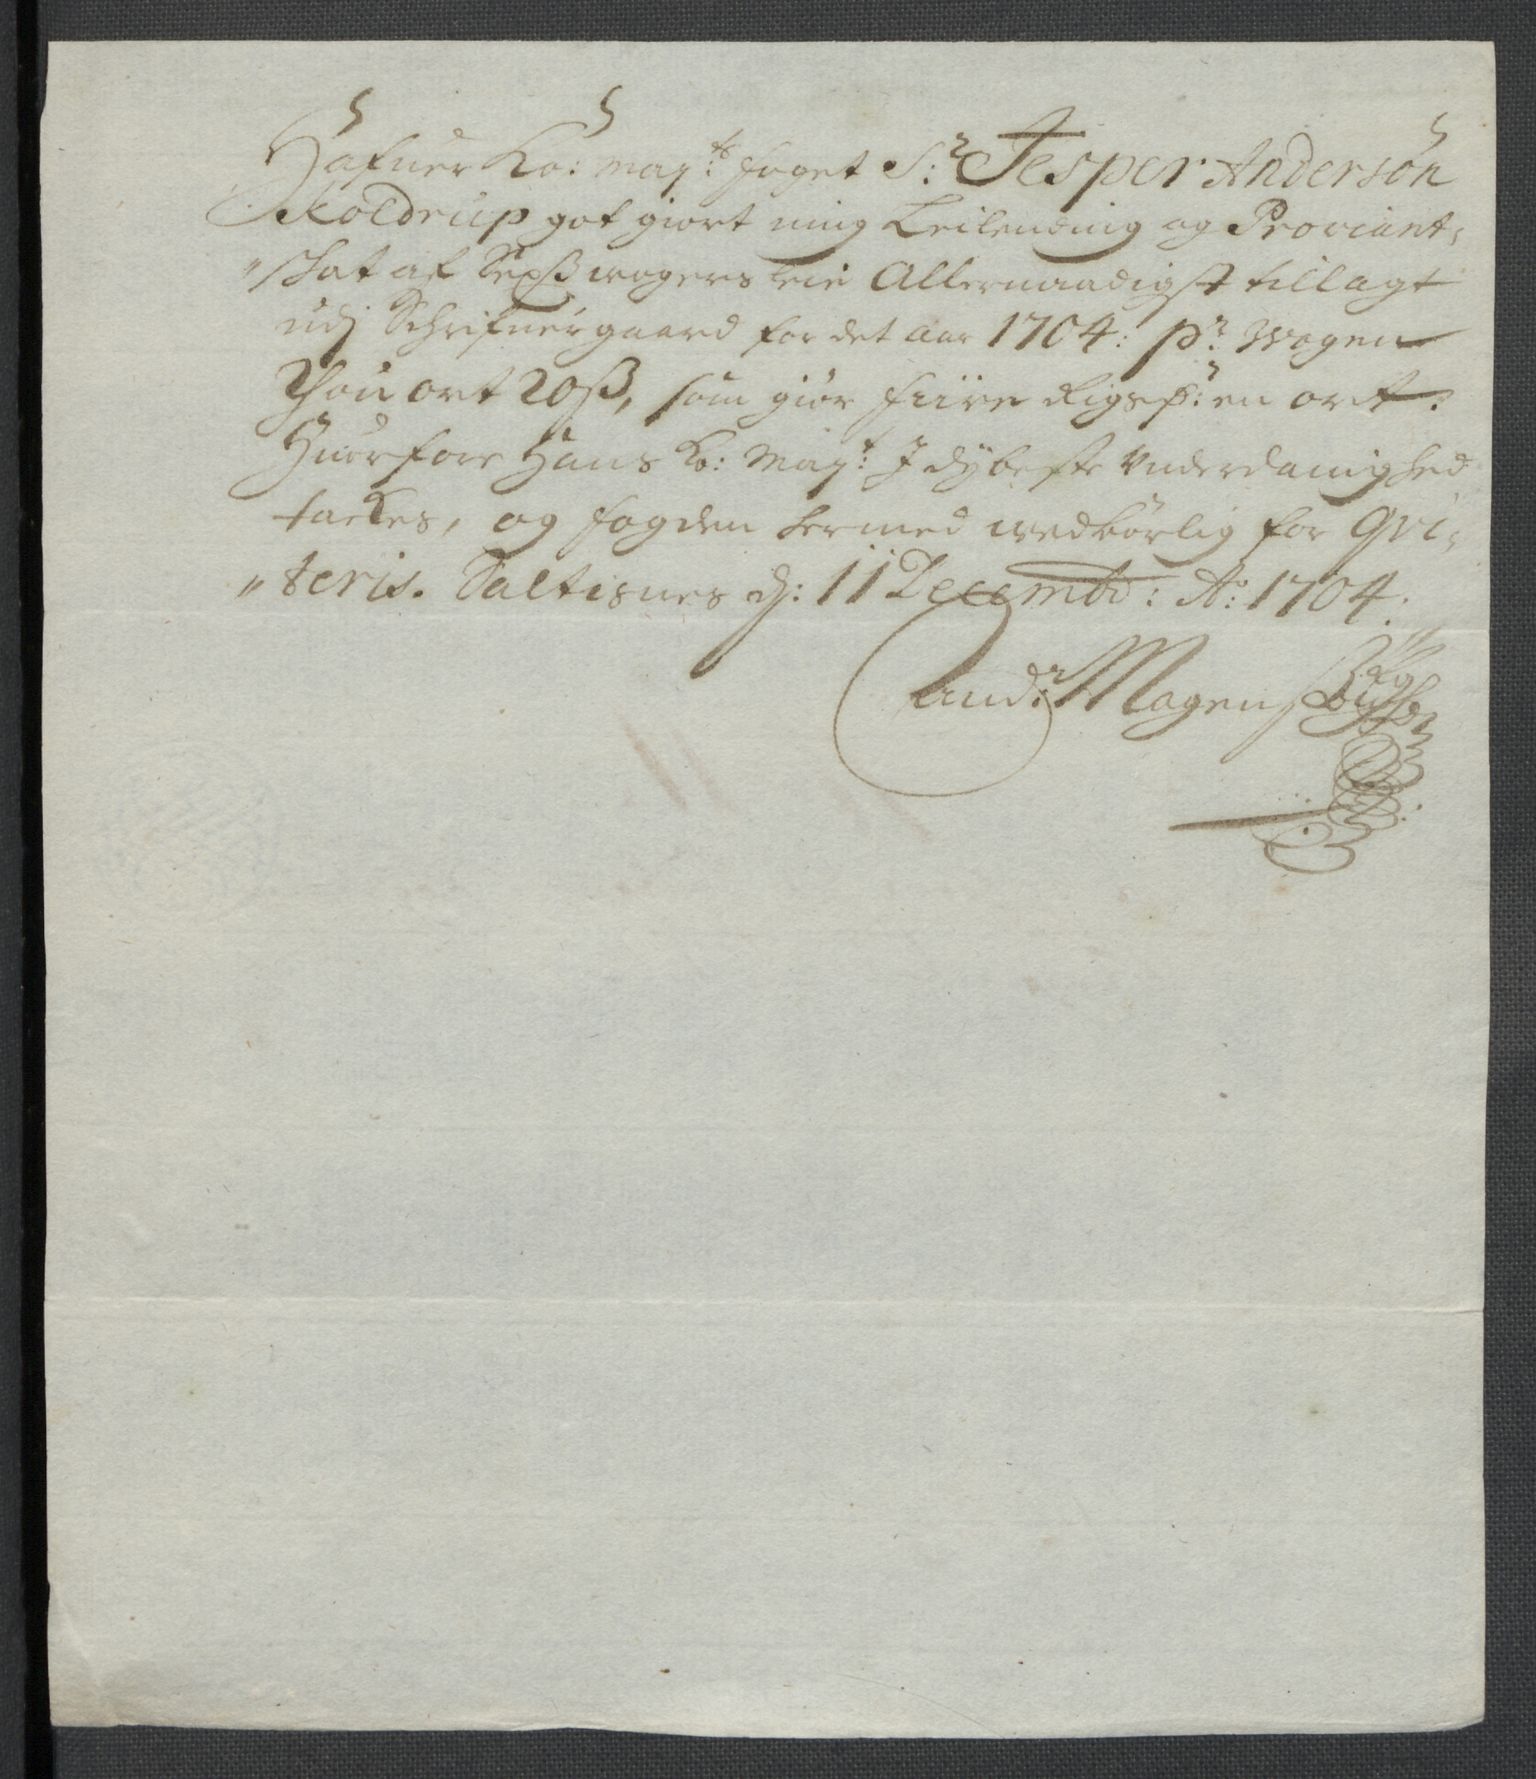 Hafuer Ko: May:ts foget S:r Jesper Andersøn
Koldrup got giort mig Leilending og Proviant,
„skat af Sexß wogers leie Allernaadigst tillagt
udj Schrifuergaard for det aar 1704: pr: Wogen
Thou ort 20ß, som giør fiire Rigsd: en ort.
Huorfore Hans Ko: Mayt: J dybeste Vnderdanighed
tackes, og fogden hermed wedbørlig for Qvi,
„teris. Saltisnes d: 11 Decembr: Ao: 1704.
And: Mogens